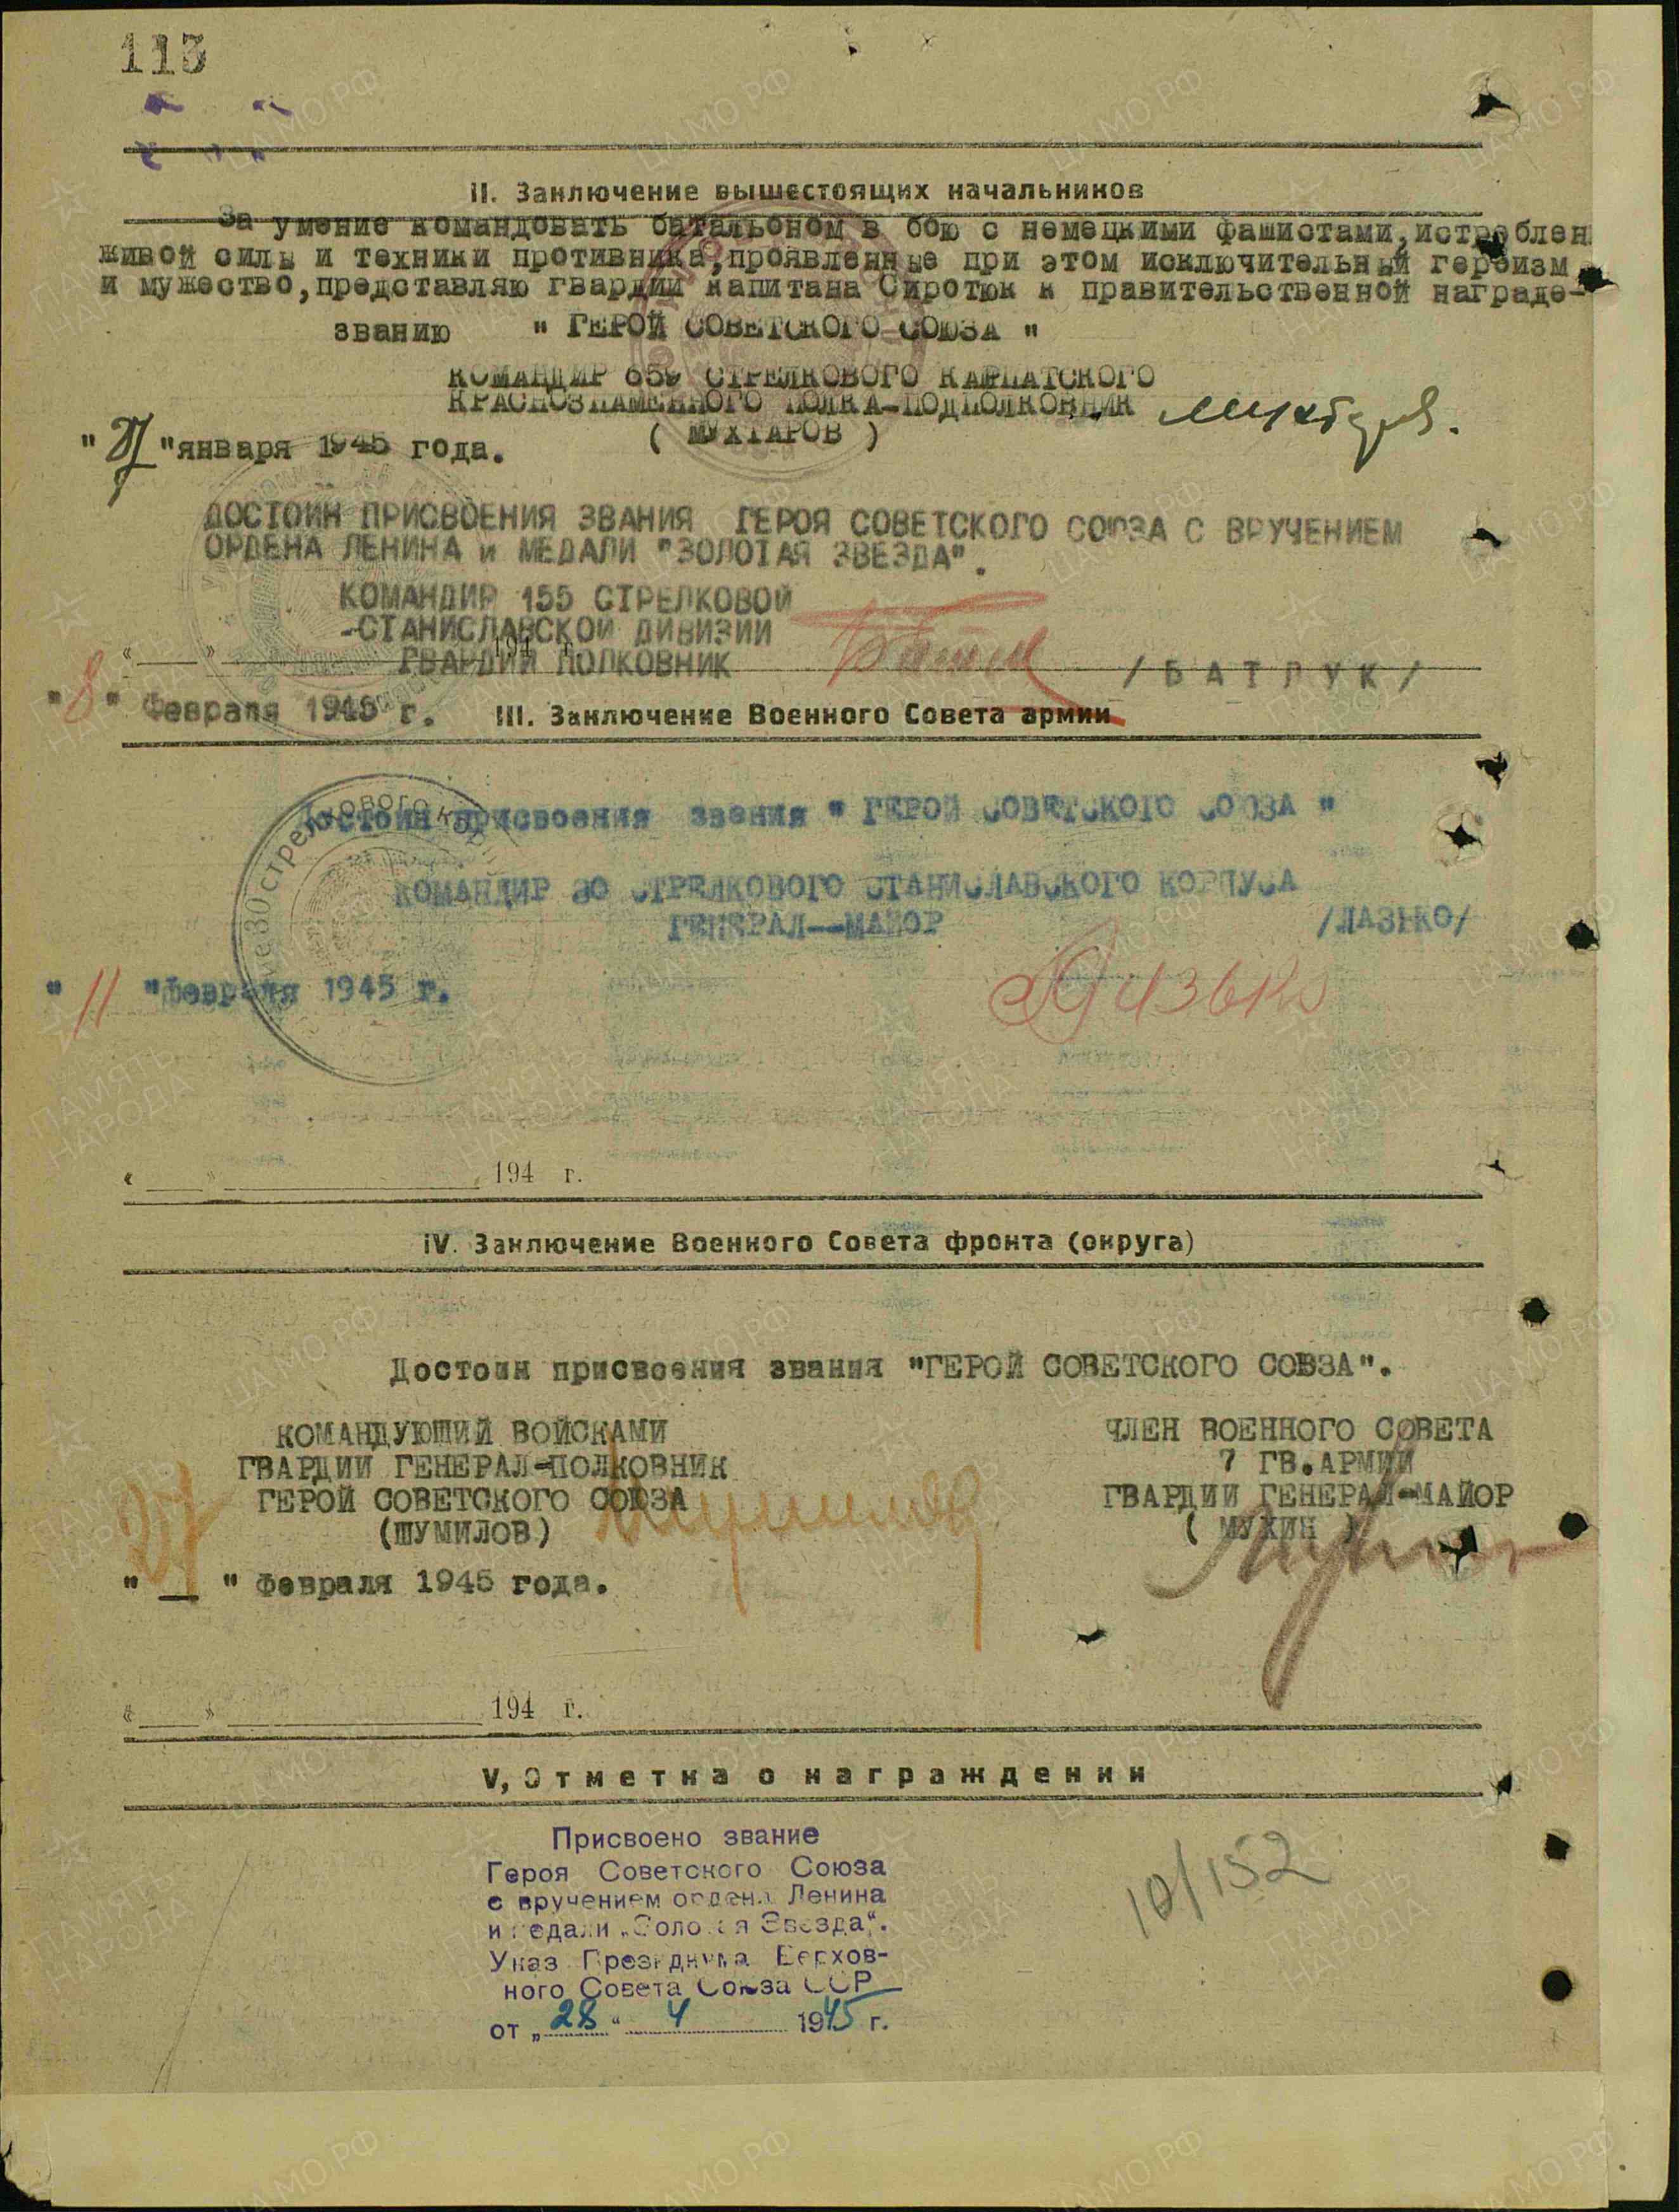 113
II. Заключение вышестоящих начальников
За умение командовать батальоном в бою с немецкими фашистами, истреблен
живой силы и техники противника, проявленные при этом исключительный героизм
и мужество, представляю гвардии капитана Сиротюк к правительственной награде-
званию " ГЕРОЙ СОВЕТСКОГО СОЮЗА "
КОМАНДИР 659 СТРЕЛКОВОГО КАРПАТСКОГО
КРАСНОЗНАМЕННОГО ПОЛКА-ПОДПОЛКОВНИК
( МУХТАРОВ )
"27" января 1945 года.
ДОСТОИН ПРИСВОЕНИЯ ЗВАНИЯ ГЕРОЯ СОВЕТСКОГО СОЮЗА С ВРУЧЕНИЕМ
ОРДЕНА ЛЕНИНА и МЕДАЛИ "ЗОЛОТАЯ ЗВЕЗДА".
КОМАНДИР 155 СТРЕЛКОВОЙ
-СТАНИСЛАВСКОЙ ДИВИЗИИ
ГВАРДИИ ПОЛКОВНИК /БАТЛУК/
« » 194 г.
"8" февраля 1945 г.
III. Заключение Военного Совета армии
Достоин присвоения звания " ГЕРОЙ СОВЕТСКОГО СОЮЗА "
КОМАНДИР 30 СТРЕЛКОВОГО СТАНИСЛАВСКОГО КОРПУСА
ГЕНЕРАЛ--МАЙОР /ЛАЗЬКО/
" 11 "февраля 1945 г.
Лазько
« » 194 г.
IV. Заключение Военного Совета фронта (округа)
Достоин присвоения звания "ГЕРОЙ СОВЕТСКОГО СОЮЗА".
КОМАНДУЮЩИЙ ВОЙСКАМИ
ГВАРДИИ ГЕНЕРАЛ-ПОЛКОВНИК
ГЕРОЙ СОВЕТСКОГО СОЮЗА
(ШУМИЛОВ)
Шумилов
ЧЛЕН ВОЕННОГО СОВЕТА
7 ГВ.АРМИИ
ГВАРДИИ ГЕНЕРАЛ-МАЙОР
( МУХИН )
27
" " февраля 1945 года.
« » 194 г.
V, Отметка о награждении
Присвоено звание
Героя Советского Союза
с вручением ордена Ленина
и медали „Золотая Звезда“.
Указ Президиума Верхов-
ного Совета Союза ССР
от „28“ 4 1945 г.
10/152